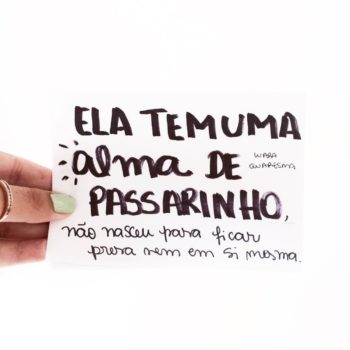 ELA TEM UMA
alma DE
WABA
QUARESMA
PASSARINHO,
não nasceu para ficar
presa nem em si mesma.